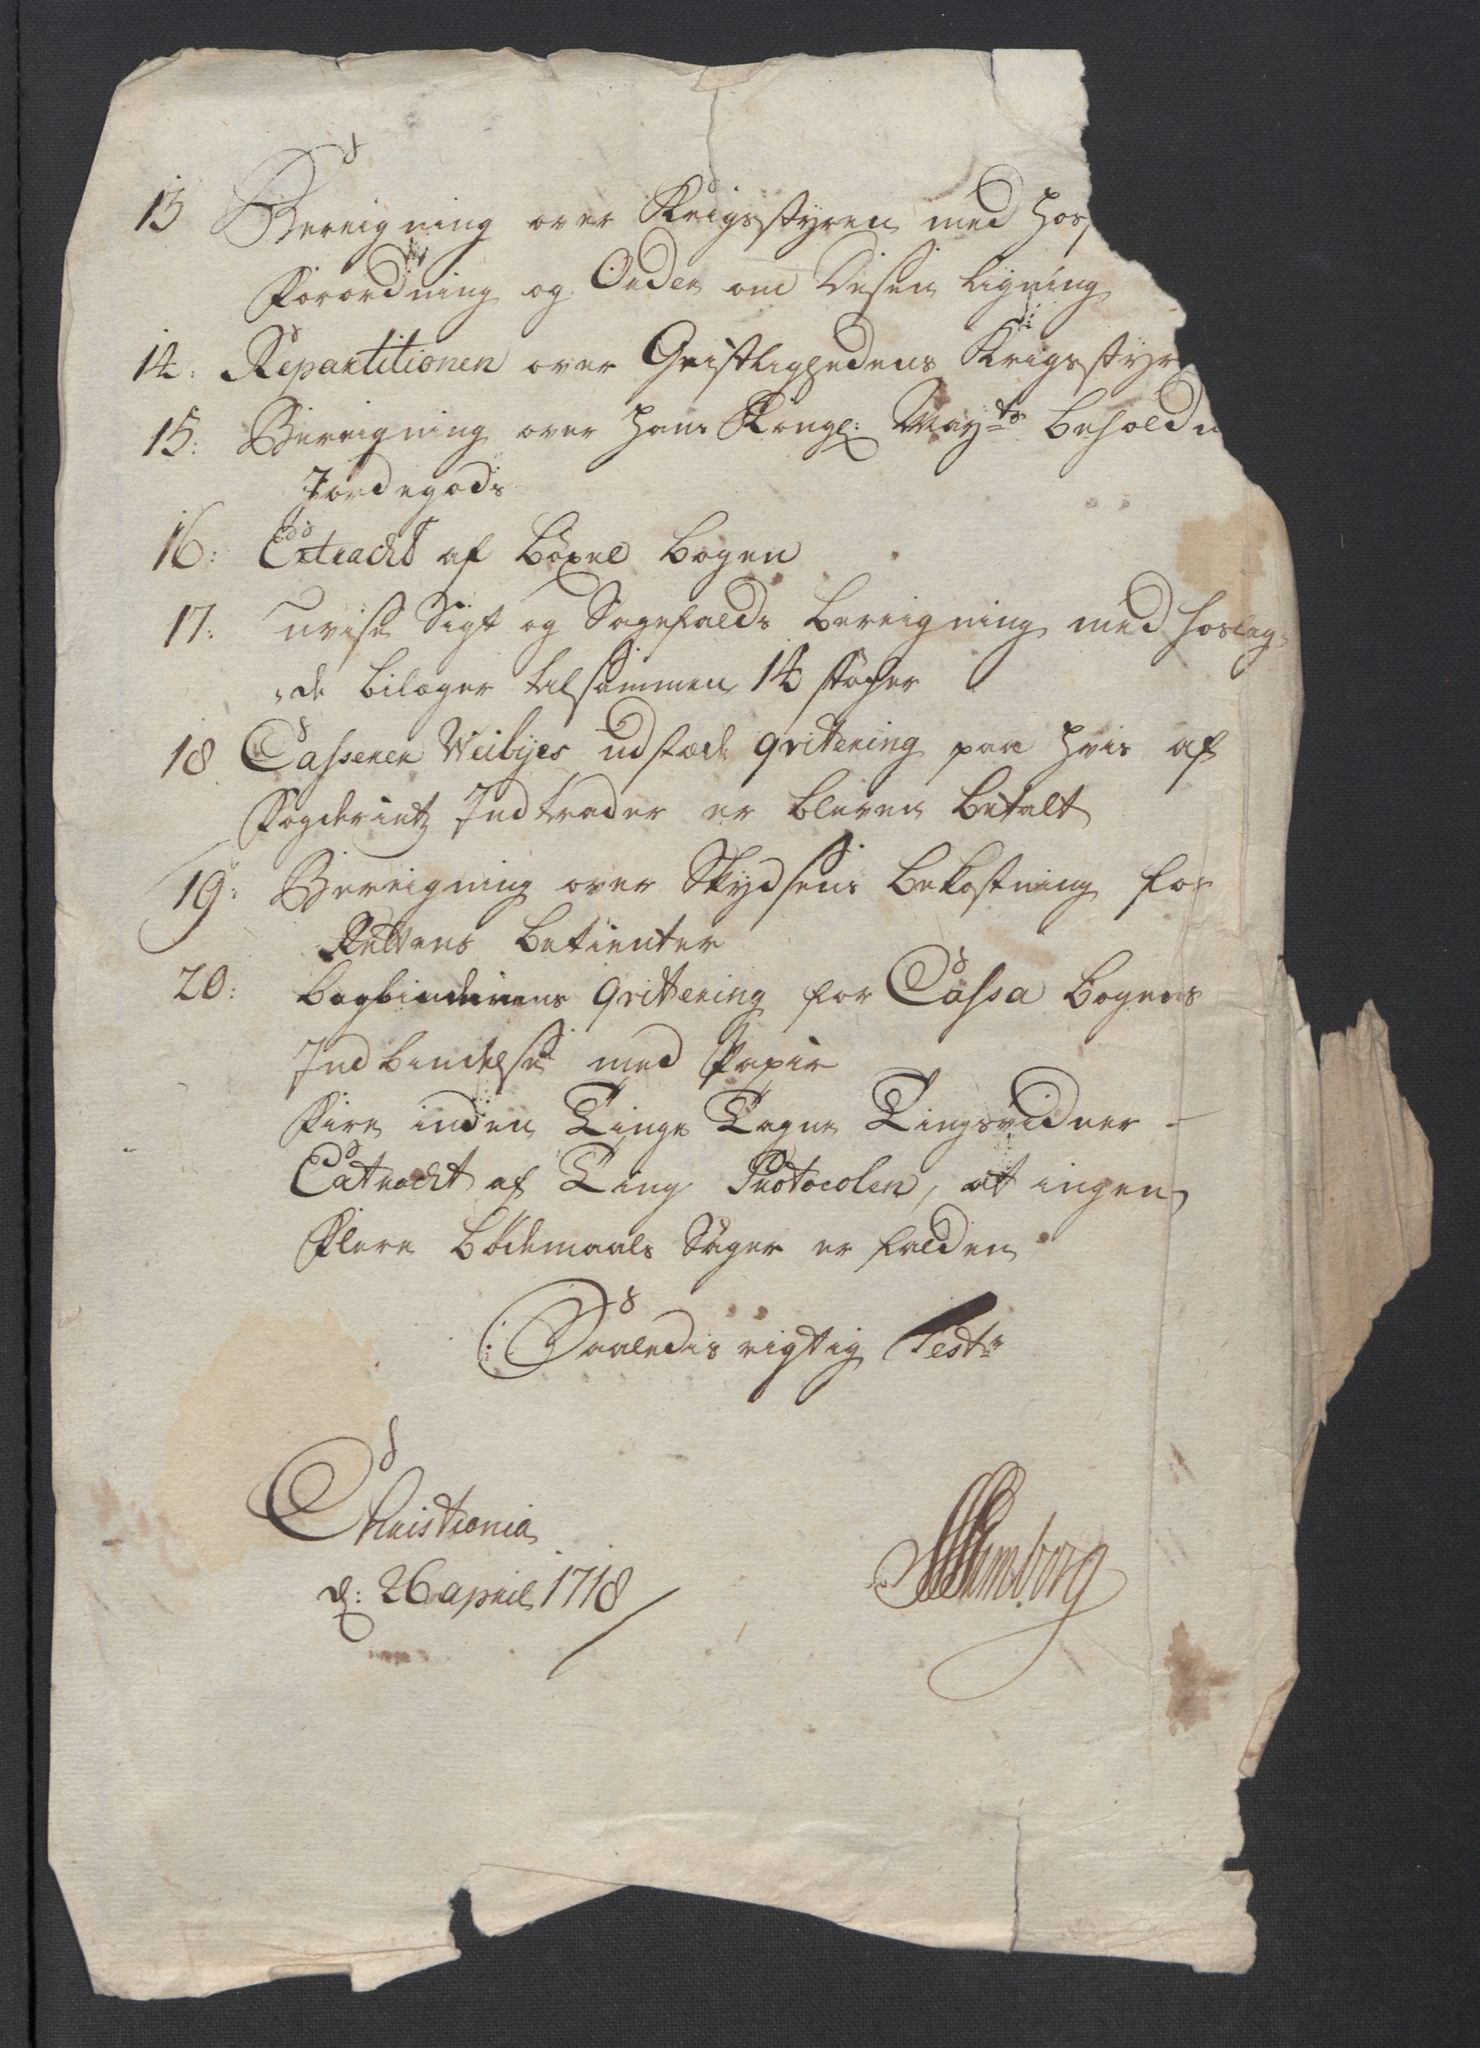 13 Bereigning over Krigsstyren med hos
Forordning og Order om Disen ligning
14: Repartitionen over Geistlighedens Krigsstyr
15: Bereigning over hans Kongl: Mayts beholdn
Jordegods
16: Extract af böxel bogen
17: uvise Sigt og Sagefalds bereigning med hosleg-
-de bilager tilsammen 14 støcher
18 Casserer Weibyes udstæde qvitering paa hvis af
Fogderietz Indtrader er bleven betalt
19: Bereigning over Skydsens bekostning for
Rettens betienter
20: bogbinderens qvitering for Cassa bogens
Indbindelse med Papir
Fire inden Tinge Tagne Tingsvidner
Extract af Ting Protocolen, at ingen
Flere bödemaals Sager er falden
Saaledis rigtig Test:
Christiania
d: 26 april 1718